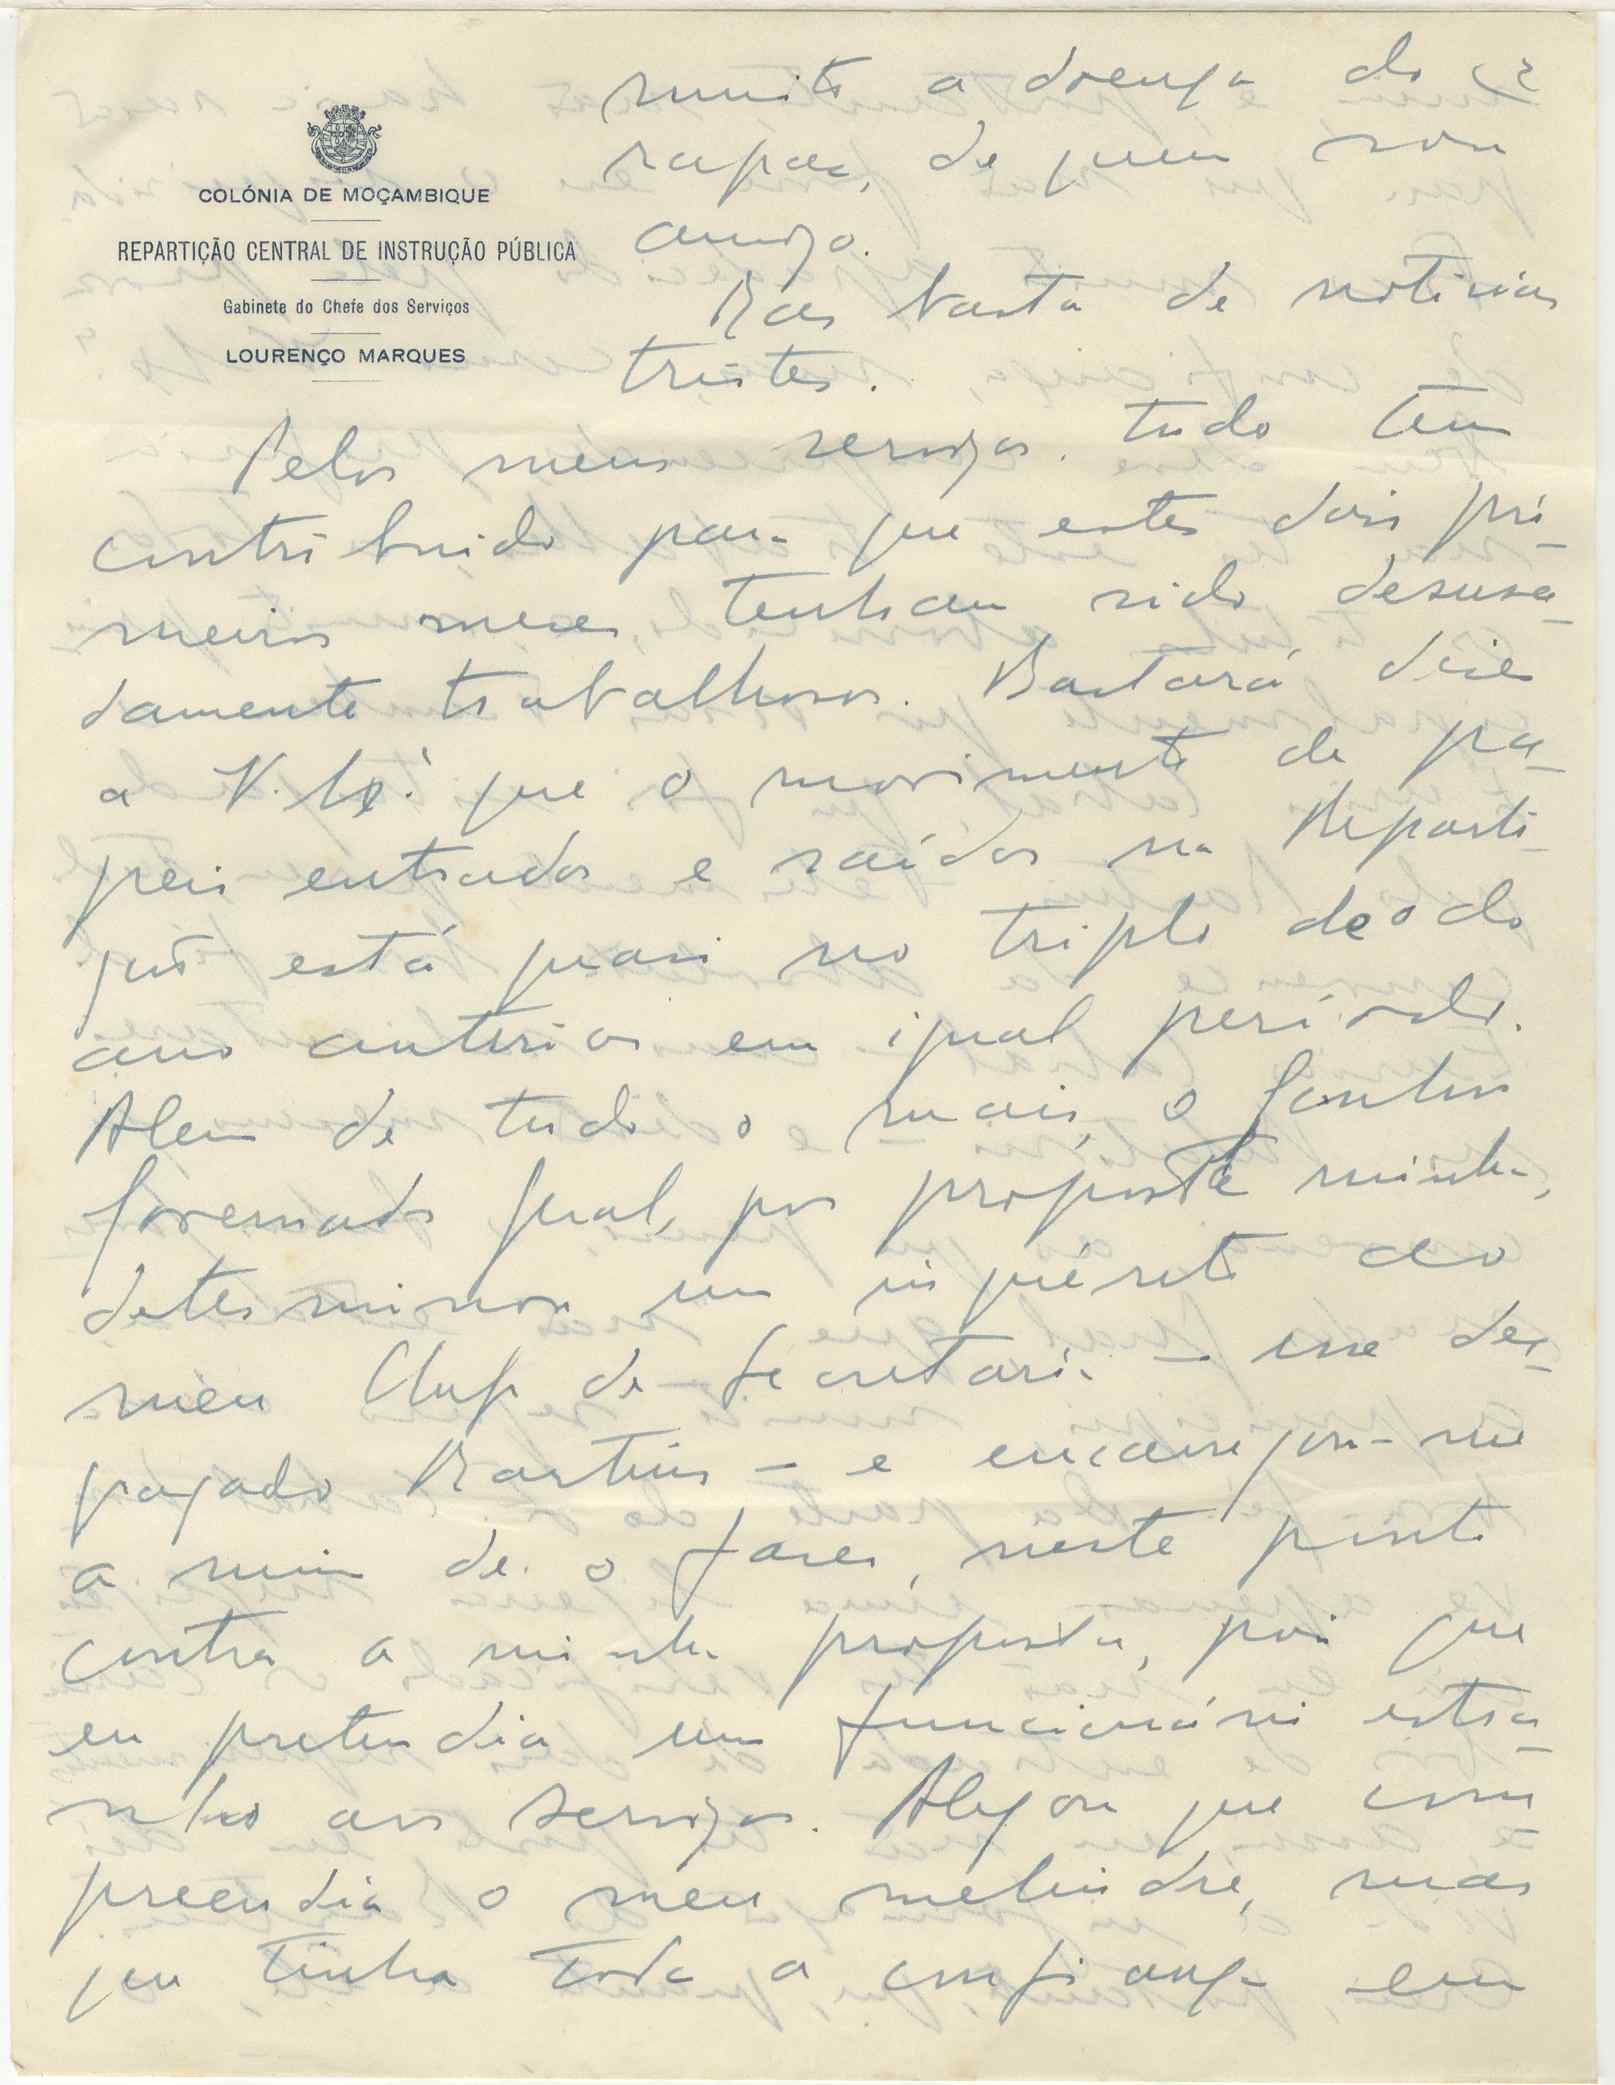 COLÓNIA DE MOÇAMBIQUE
REPARTIÇÃO CENTRAL DE INSTRUÇÃO PÚBLICA
Gabinete do Chefe dos Serviços
LOURENÇO MARQUES
muito a doença do
rapaz, de quem sou
amigo.
Mas basta de noticias
tristes.
Pelos meus serviços, tudo tem
contribuido para que estes dois pri-
meiros meses tenham sido desusa-
damente trabalhosos. Bastará dizer
a V. Exª. que o movimento de pa-
peis entrados e saídos na Reparti-
ção está quasi no triplo do do
ano anterior em igual período.
Alem de tudo o mais, o Senhor
Governador Geral, por proposta minha,
determinou um inquérito ao
meu Chefe de Secretaria - esse des-
graçado Martins - e encarregou-me
a mim de o fazer, neste ponto
contra a minha proposta, pois que
eu pretendia um funcionário estra-
nho aos serviços. Alegou que com-
preendia o meu melindre, mas
que tinha toda a confiança em